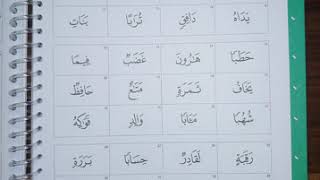 يَدَاهُ دَافِقٍ تُرَابًا بَنَاتٍ
حَطَبًا هَارُونَ غَضَبٌ فِيمَا
يَخَافُ ثَمَرَةٍ مَتَاعٌ حَافِظٌ
شُهُبًا مَتَابًا وَالِدٍ فَوَاكِهُ
رَقَبَةٍ لَقَادِرٌ حِسَابًا بَرَرَةٍ